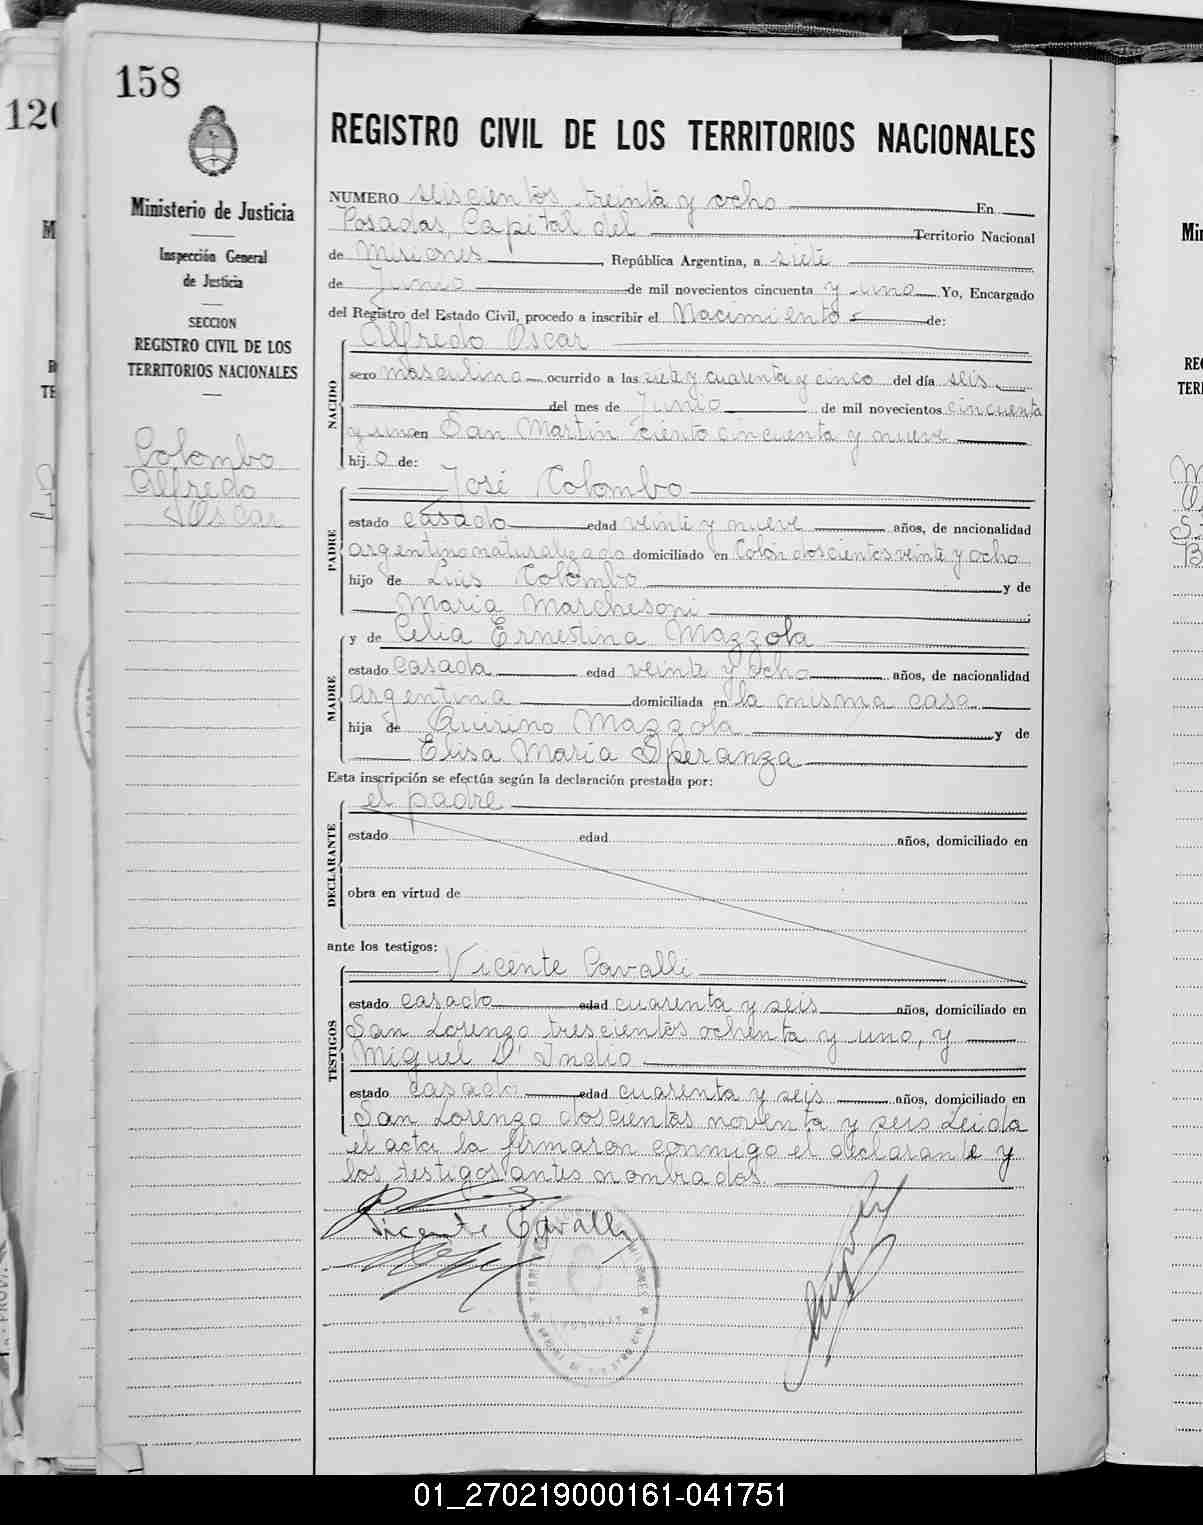 158
120
Ministerio de Justicia
Inspección General
de Justicia
SECCION
REGISTRO CIVIL DE LOS
TERRITORIOS NACIONALES
Colombo
Alfredo
Oscar
REGISTRO CIVIL DE LOS TERRITORIOS NACIONALES
NUMERO seiscientos treinta y ocho En
Posadas, Capital del Territorio Nacional
de Misiones, República Argentina, a siete
de Junio de mil novecientos cincuenta y uno Yo, Encargado
del Registro del Estado Civil, procedo a inscribir el Nacimiento de:
Alfredo Oscar
NACIDO
sexo masculino ocurrido a las siete y cuarenta y cinco del día seis
del mes de Junio de mil novecientos cincuenta
y uno en San Martin ciento cincuenta y nueve
hijo de:
José Colombo
PADRE
estado casado edad veinte y nueve años, de nacionalidad
argentino naturalizado domiciliado en Colón doscientos veinte y ocho
hijo de Luis Colombo y de
Maria Marchesoni
y de Celia Ernestina Mazzola
MADRE
estado casada edad veinte y ocho años, de nacionalidad
argentina domiciliada en la misma casa
hija de Quirino Mazzola y de
Elisa Maria Speranza
Esta inscripción se efectúa según la declaración prestada por:
el padre
DECLARANTE
estado edad años, domiciliado en
obra en virtud de
ante los testigos:
Vicente Cavalli
TESTIGOS
estado casado edad cuarenta y seis años, domiciliado en
San Lorenzo trescientos ochenta y uno, y
Miguel D'Indio
estado casado edad cuarenta y seis años, domiciliado en
San Lorenzo doscientos noventa y seis Leida
el acta la firmaron conmigo el declarante y
los testigos antes nombrados.
Vicente Cavalli
01_270219000161-041751